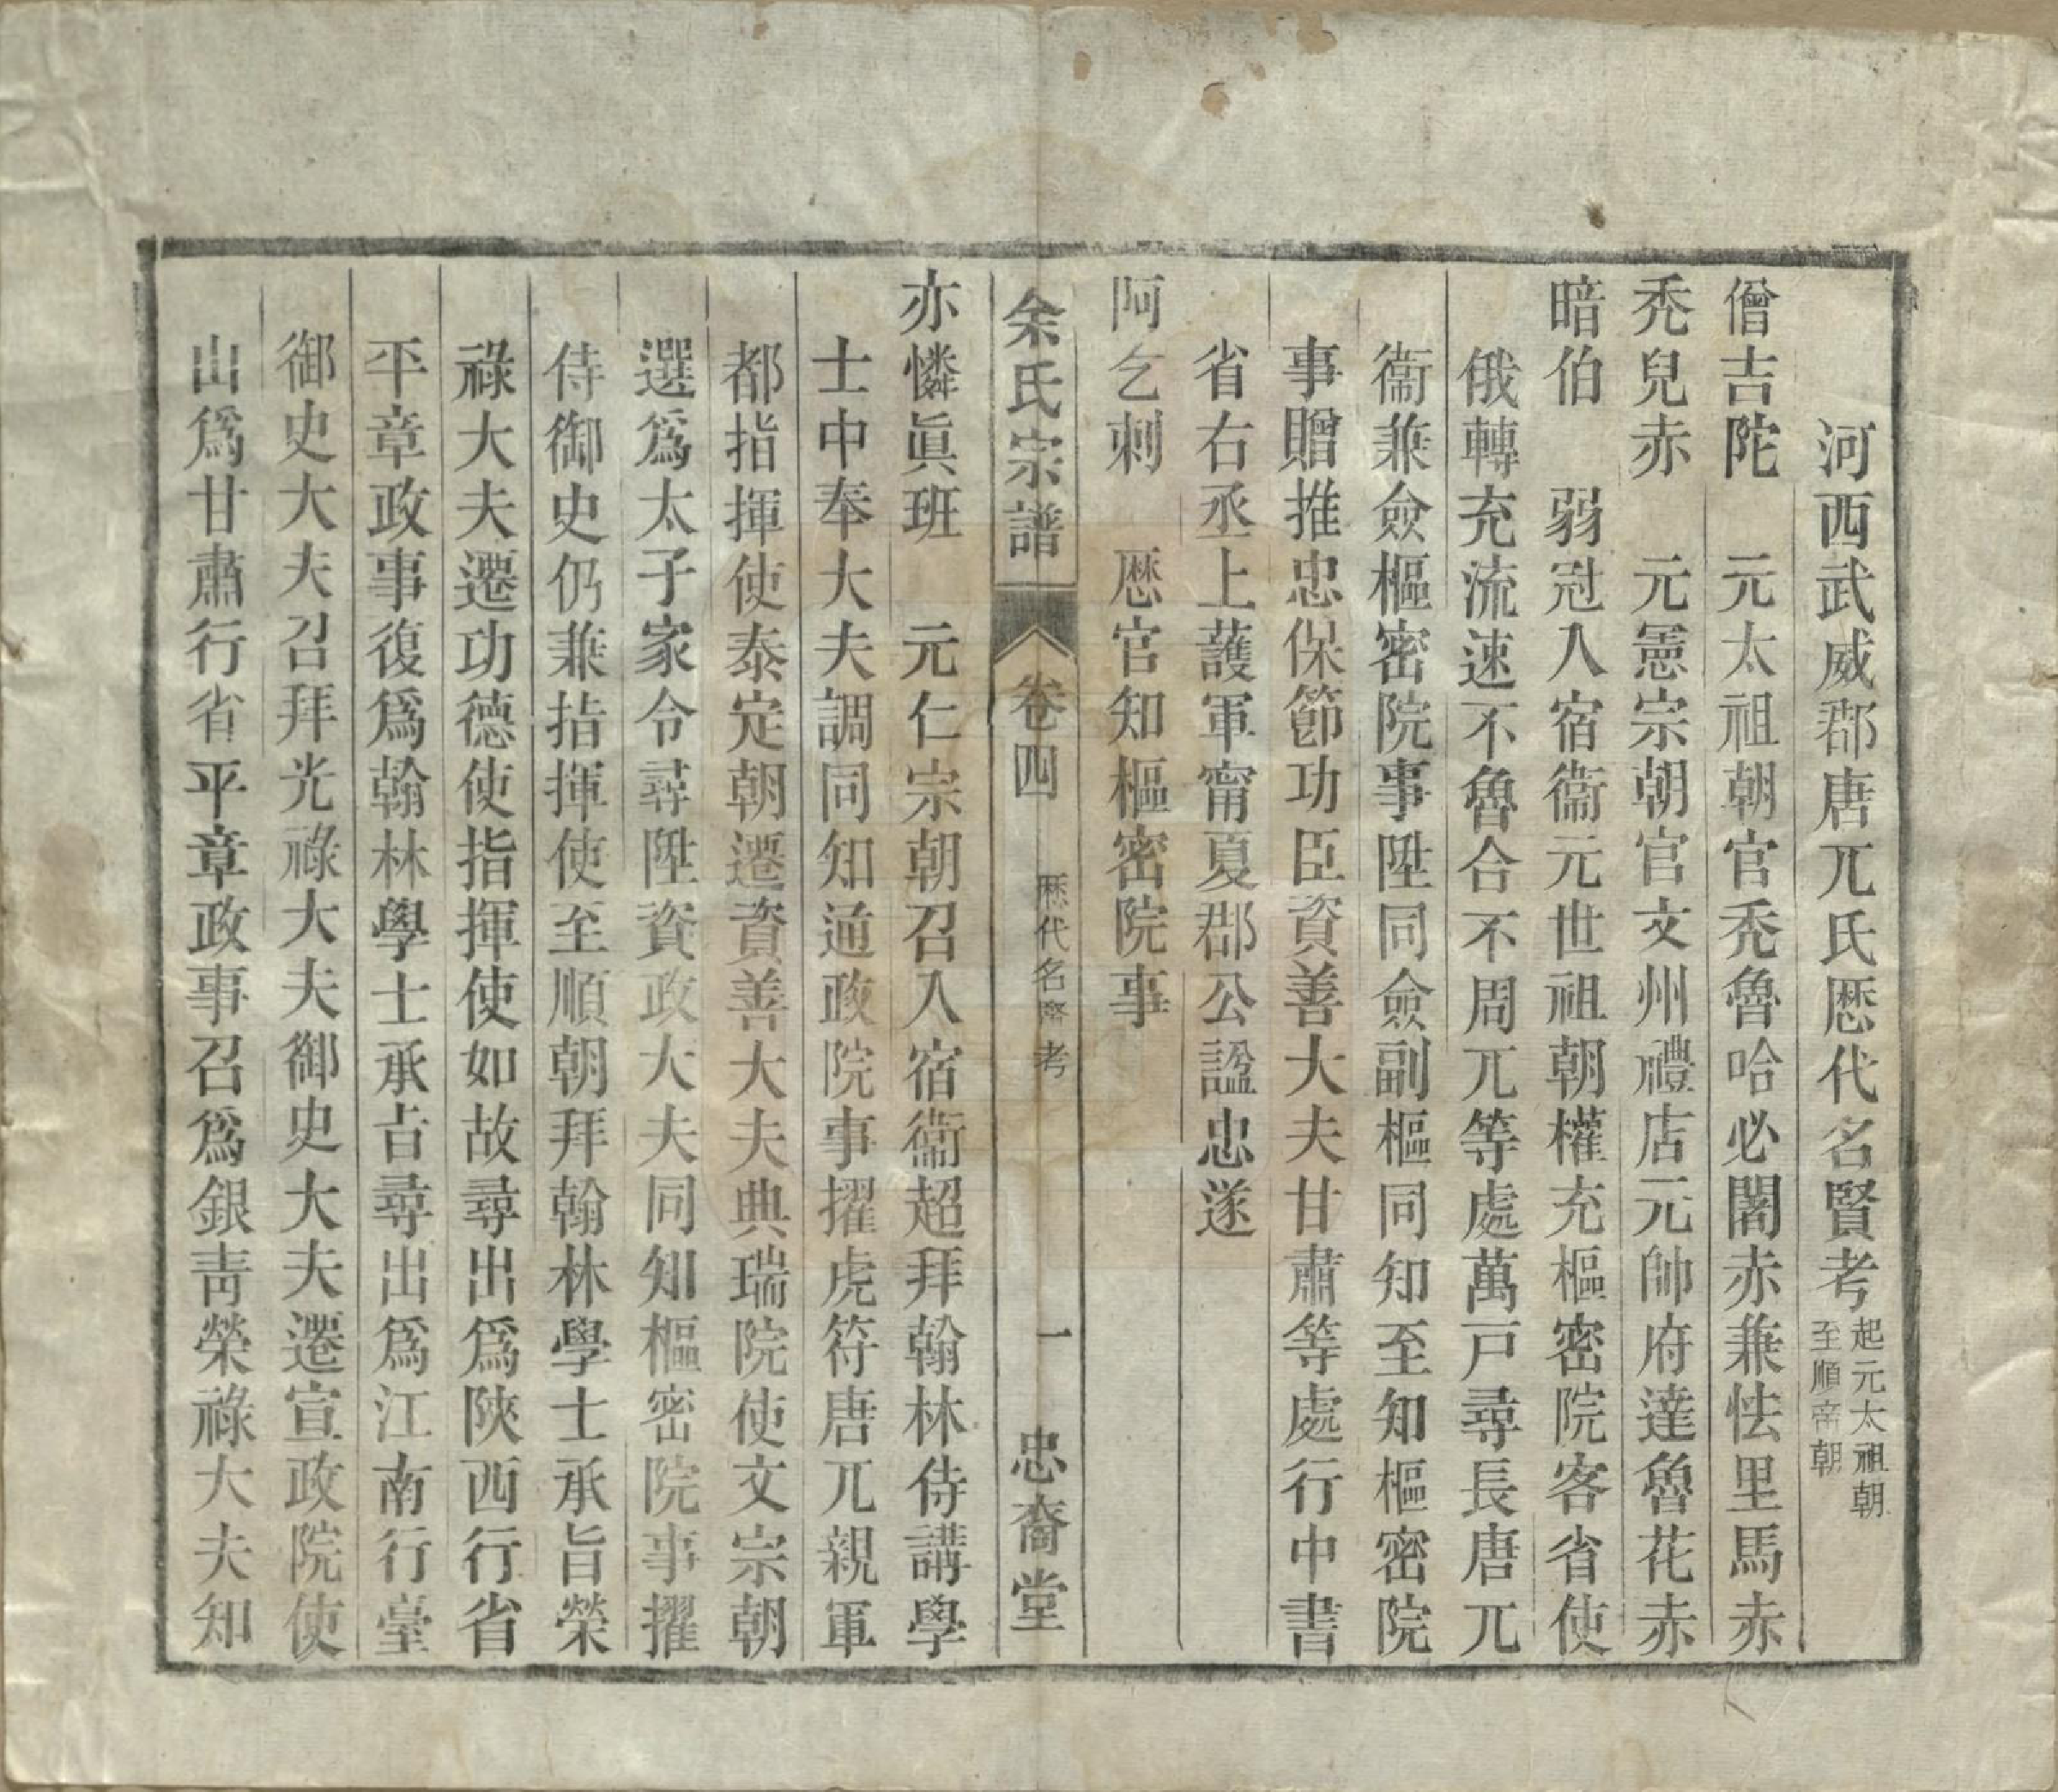 河西武威郡唐兀氏厯代名賢考起元太祖朝至順帝朝
僧吉陀　元太祖朝官禿魯哈必闍赤兼怯里馬赤
禿兒赤　元憲宗朝官文州禮店元帥府達魯花赤
暗伯　弱冠入宿衞元世祖朝權充樞密院客省使
俄轉充流速不魯合不周兀等處萬戸尋長唐兀
衞兼僉樞密院事陞同僉副樞同知至知樞密院
事贈推忠保節功臣資善大夫甘肅等處行中書
省右丞上護軍甯夏郡公諡忠遂
阿乞刺　厯官知樞密院事
余氏宗譜　卷四　厯代名賢考　一　忠裔堂
亦憐眞班　元仁宗朝召入宿衞超拜翰林侍講學
士中奉大夫調同知通政院事擢虎符唐兀親軍
都指揮使泰定朝遷資善大夫典瑞院使文宗朝
選爲太子家令尋陞資政大夫同知樞密院事擢
侍御史仍兼指揮使至順朝拜翰林學士承旨榮
祿大夫遷功德使指揮使如故尋出爲陝西行省
平章政事復爲翰林學士承旨尋出爲江南行臺
御史大夫召拜光祿大夫御史大夫遷宣政院使
出爲甘肅行省平章政事召爲銀靑榮祿大夫知